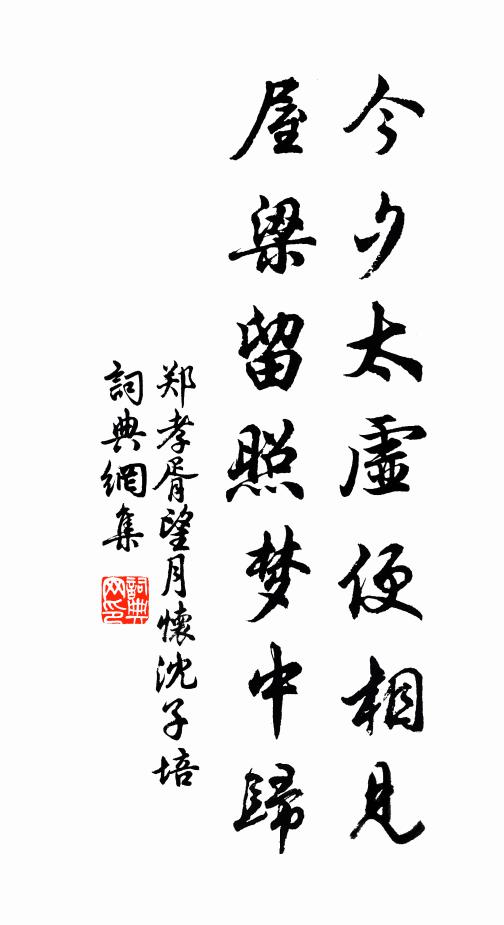 今夕太虚便相見
屋梁留照梦中歸
郑孝胥望月懷沈子培
詞典網集
詞典网印